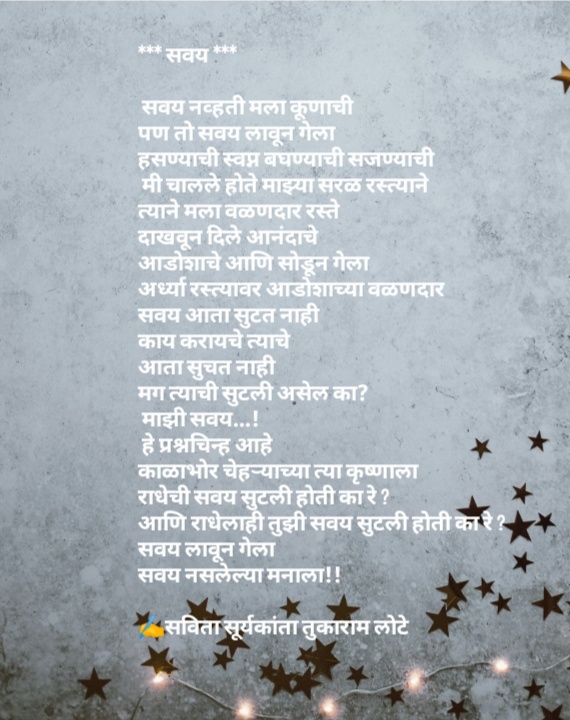 *** सवय ***
सवय नव्हती मला कूणाची
पण तो सवय लावून गेला
हसण्याची स्वप्न बघण्याची सजण्याची
मी चालले होते माझ्या सरळ रस्त्याने
त्याने मला वळणदार रस्ते
दाखवून दिले आनंदाचे
आडोशाचे आणि सोडून गेला
अर्ध्या रस्त्यावर आडोशाच्या वळणदार
सवय आता सुटत नाही
काय करायचे त्याचे
आता सुचत नाही
मग त्याची सुटली असेल का?
माझी सवय...!
हे प्रश्नचिन्ह आहे
काळाभोर चेहऱ्याच्या त्या कृष्णाला
राधेची सवय सुटली होती का रे ?
आणि राधेलाही तुझी सवय सुटली होती का रे ?
सवय लावून गेला
सवय नसलेल्या मनाला!!
✍️सविता सूर्यकांता तुकाराम लोटे